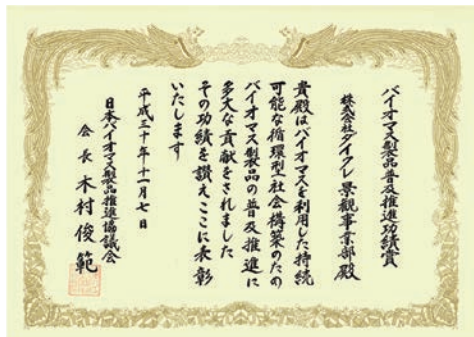 バイオマス製品普及推進功績賞
株式会社ダイクレ 景観事業部 殿
貴殿はバイオマスを利用した持続
可能な循環型社会構築のための
バイオマス製品の普及推進に
多大な貢献をされました
その功績を讃えここに表彰
いたします
平成三十年十一月七日
日本バイオマス製品推進協議会
会長 木村俊範